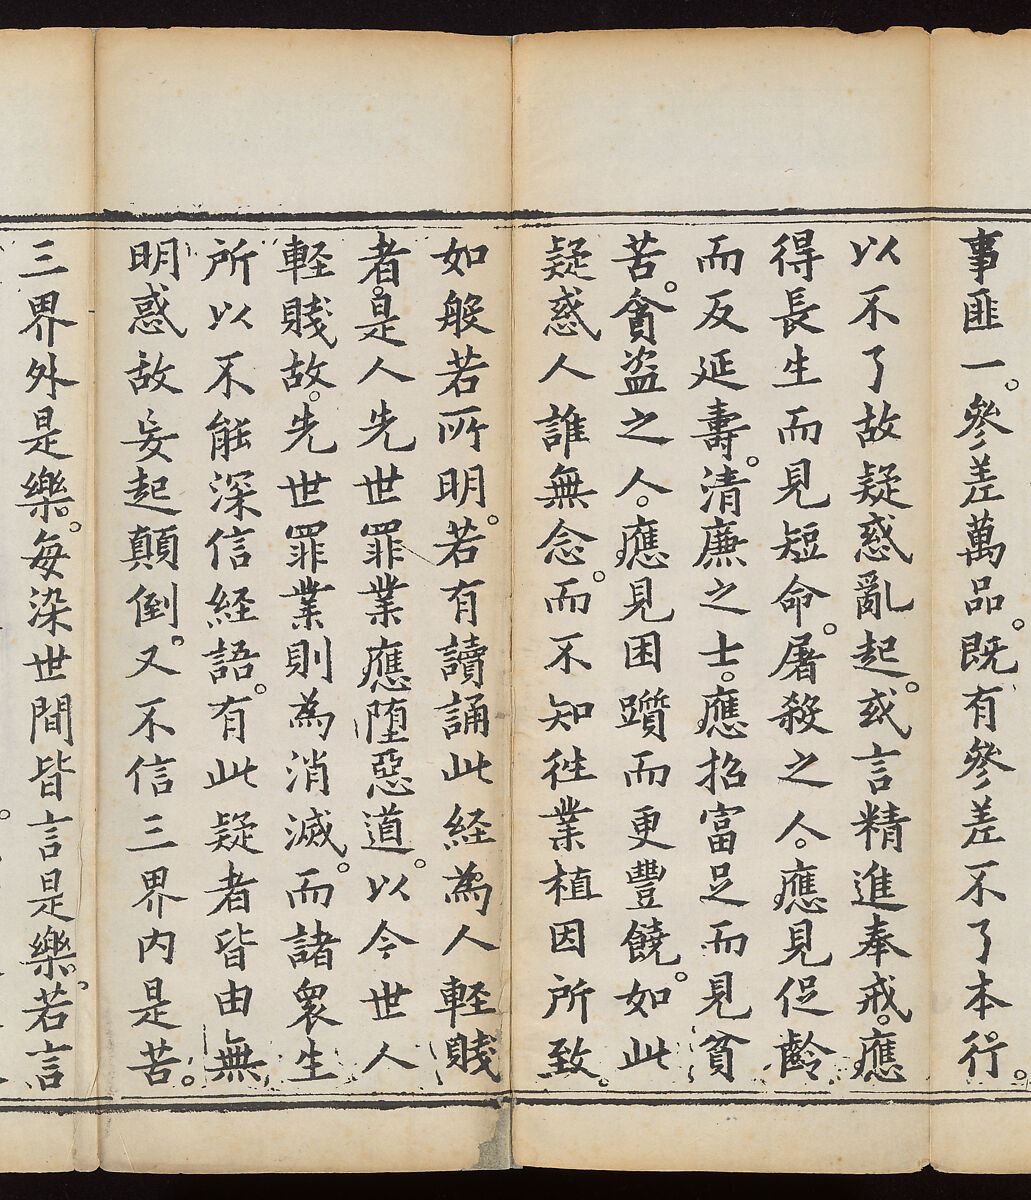 事匪一。參差萬品。既有參差不了本行。
以不了故疑惑亂起。或言精進奉戒。應
得長生而見短命。屠殺之人。應見促齡
而反延壽。清廉之士。應招富足而見貧
苦。貪盜之人。應見困躓而更豐饒。如此
疑惑人誰無念。而不知徃業植因所致。
如般若所明。若有讀誦此経為人輕賤
者。是人先世罪業應堕惡道。以今世人
輕賤故。先世罪業則為消滅。而諸衆生
所以不能深信経語。有此疑者皆由無
明惑故妄起顛倒。又不信三界內是苦。
三界外是樂。每染世間皆言是樂。若言